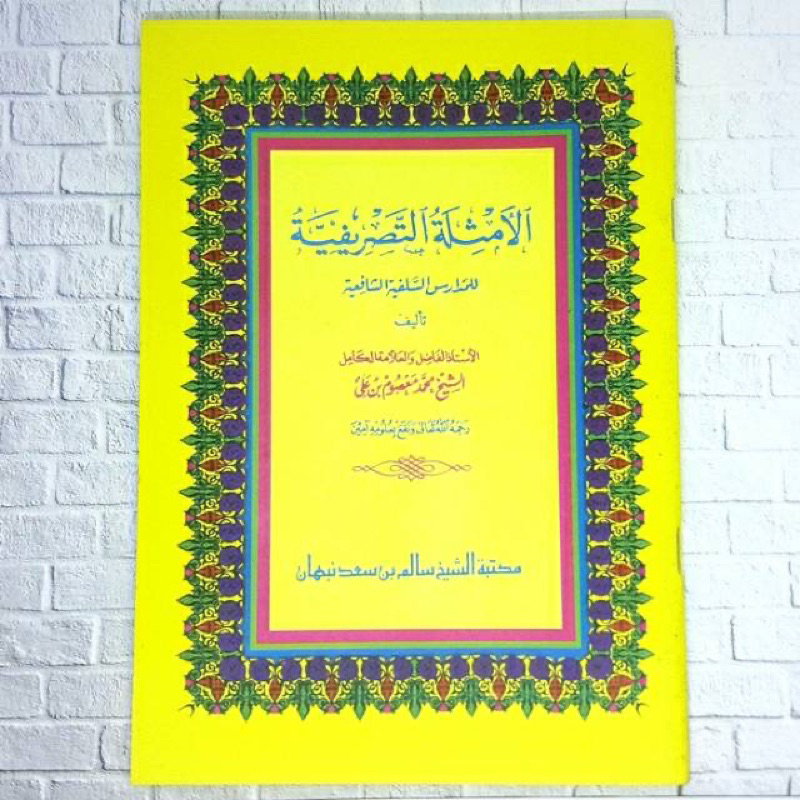 الأَمْثِلَةُ التَّصْرِيفِيَّةُ
للمدارس السلفية الشافعية
تأليف
الأستاذ الفاضل والعلامة الكامل
الشيخ محمد معصوم بن علي
رحمه الله تعالى ونفع بعلومه آمين
مكتبة الشيخ سالم بن سعد نبهان